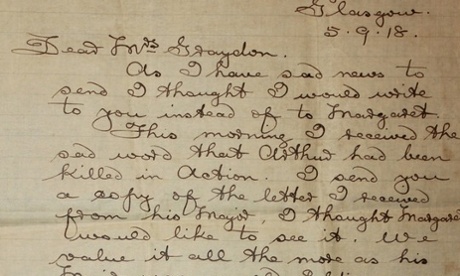 Glasgow.
5.9.18.
Dear Mrs Graydon.
As I have sad news to
send I thought I would write
to you instead of to Margaret.
This morning I received the
sad word that Arthur had been
killed in Action. I send you
a copy of the letter I received
from his Major, I thought Margaret
would like to see it. We
value it all the more as his